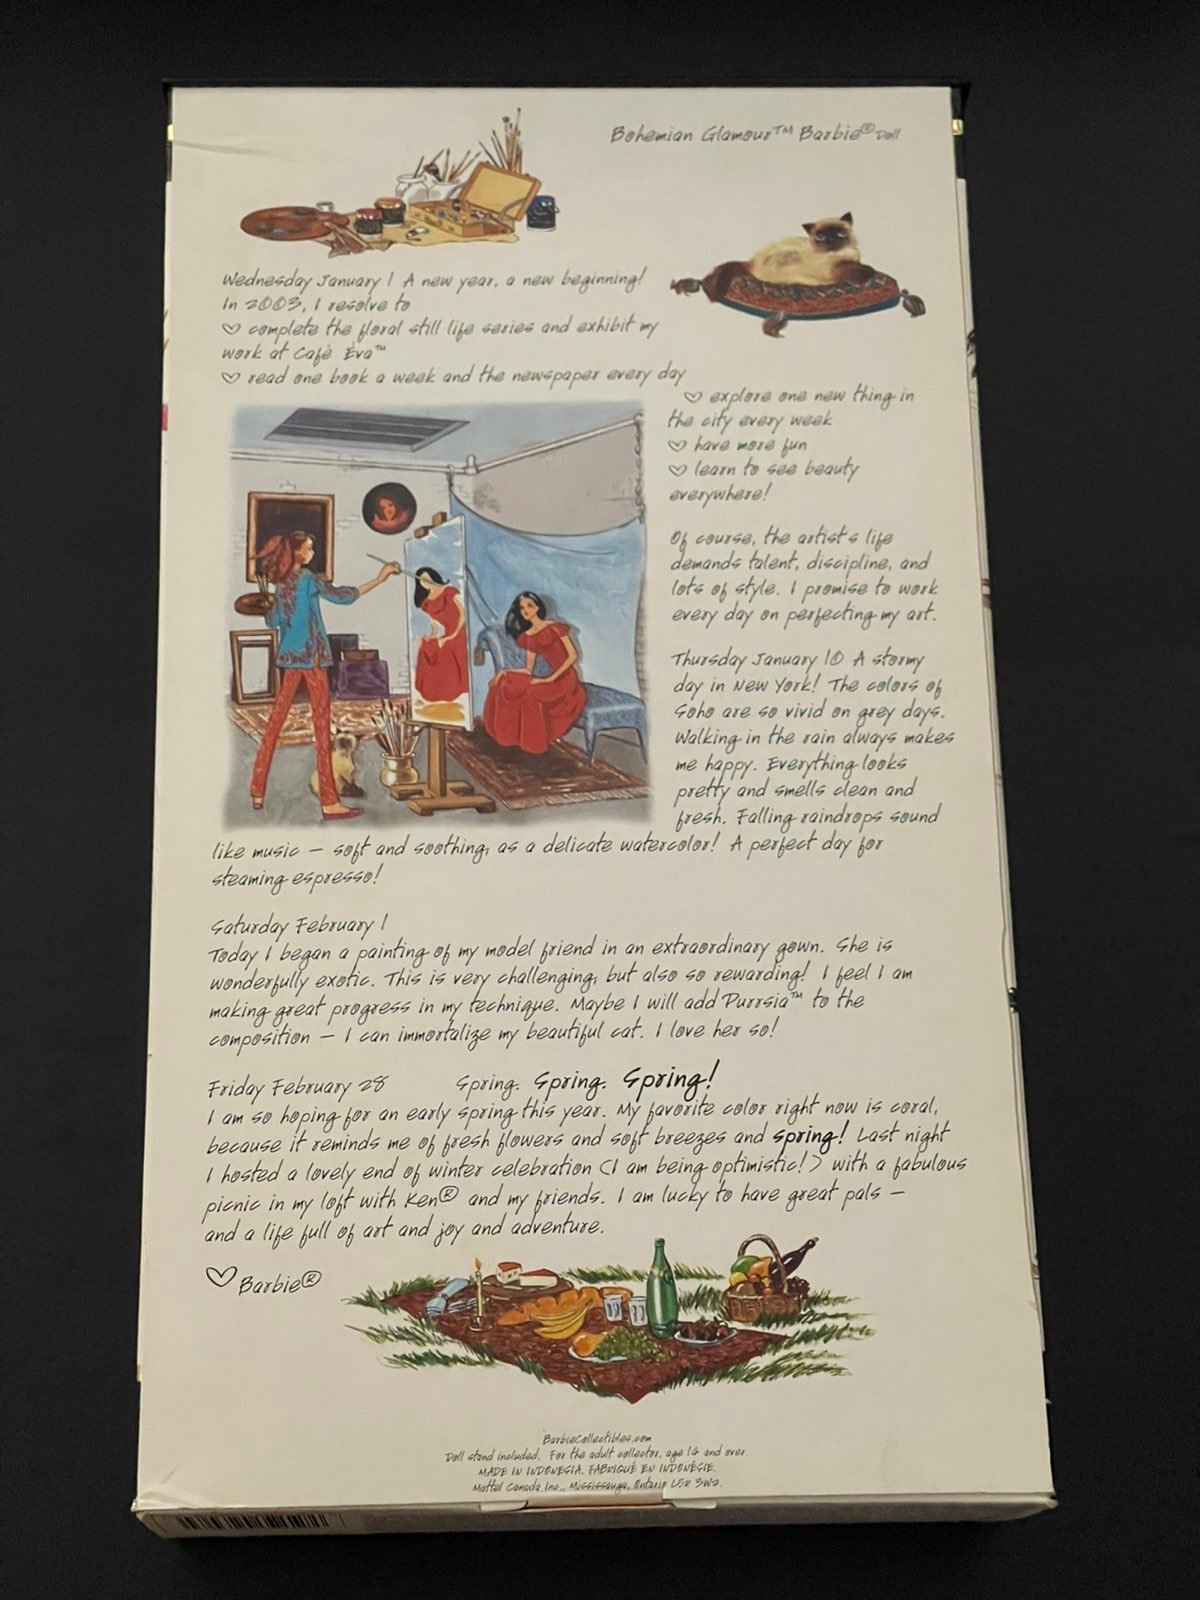 Bohemian Glamour™ Barbie® Doll
Wednesday January 1 A new year, a new beginning!
In 2003, I resolve to
♡ complete the floral still life series and exhibit my
work at Café Éva™
♡ read one book a week and the newspaper every day
♡ explore one new thing in
the city every week
♡ have more fun
♡ learn to see beauty
everywhere!
Of course, the artist's life
demands talent, discipline, and
lots of style. I promise to work
every day on perfecting my art.
Thursday January 10 A stormy
day in New York! The colors of
Soho are so vivid on grey days.
Walking in the rain always makes
me happy. Everything looks
pretty and smells clean and
fresh. Falling raindrops sound
like music – soft and soothing, as a delicate watercolor! A perfect day for
steaming espresso!
Saturday February 1
Today I began a painting of my model friend in an extraordinary gown. She is
wonderfully exotic. This is very challenging, but also so rewarding! I feel I am
making great progress in my technique. Maybe I will add Purrsia™ to the
composition – I can immortalize my beautiful cat. I love her so!
Friday February 28 Spring. Spring. Spring!
I am so hoping for an early spring this year. My favorite color right now is coral,
because it reminds me of fresh flowers and soft breezes and spring! Last night
I hosted a lovely end of winter celebration (I am being optimistic!) with a fabulous
picnic in my loft with Ken® and my friends. I am lucky to have great pals –
and a life full of art and joy and adventure.
♡ Barbie®
BarbieCollectibles.com
Doll stand included. For the adult collector, age 14 and over.
MADE IN INDONESIA. FABRIQUÉ EN INDONÉSIE.
Mattel Canada Inc., Mississauga, Ontario L5R 3W2.